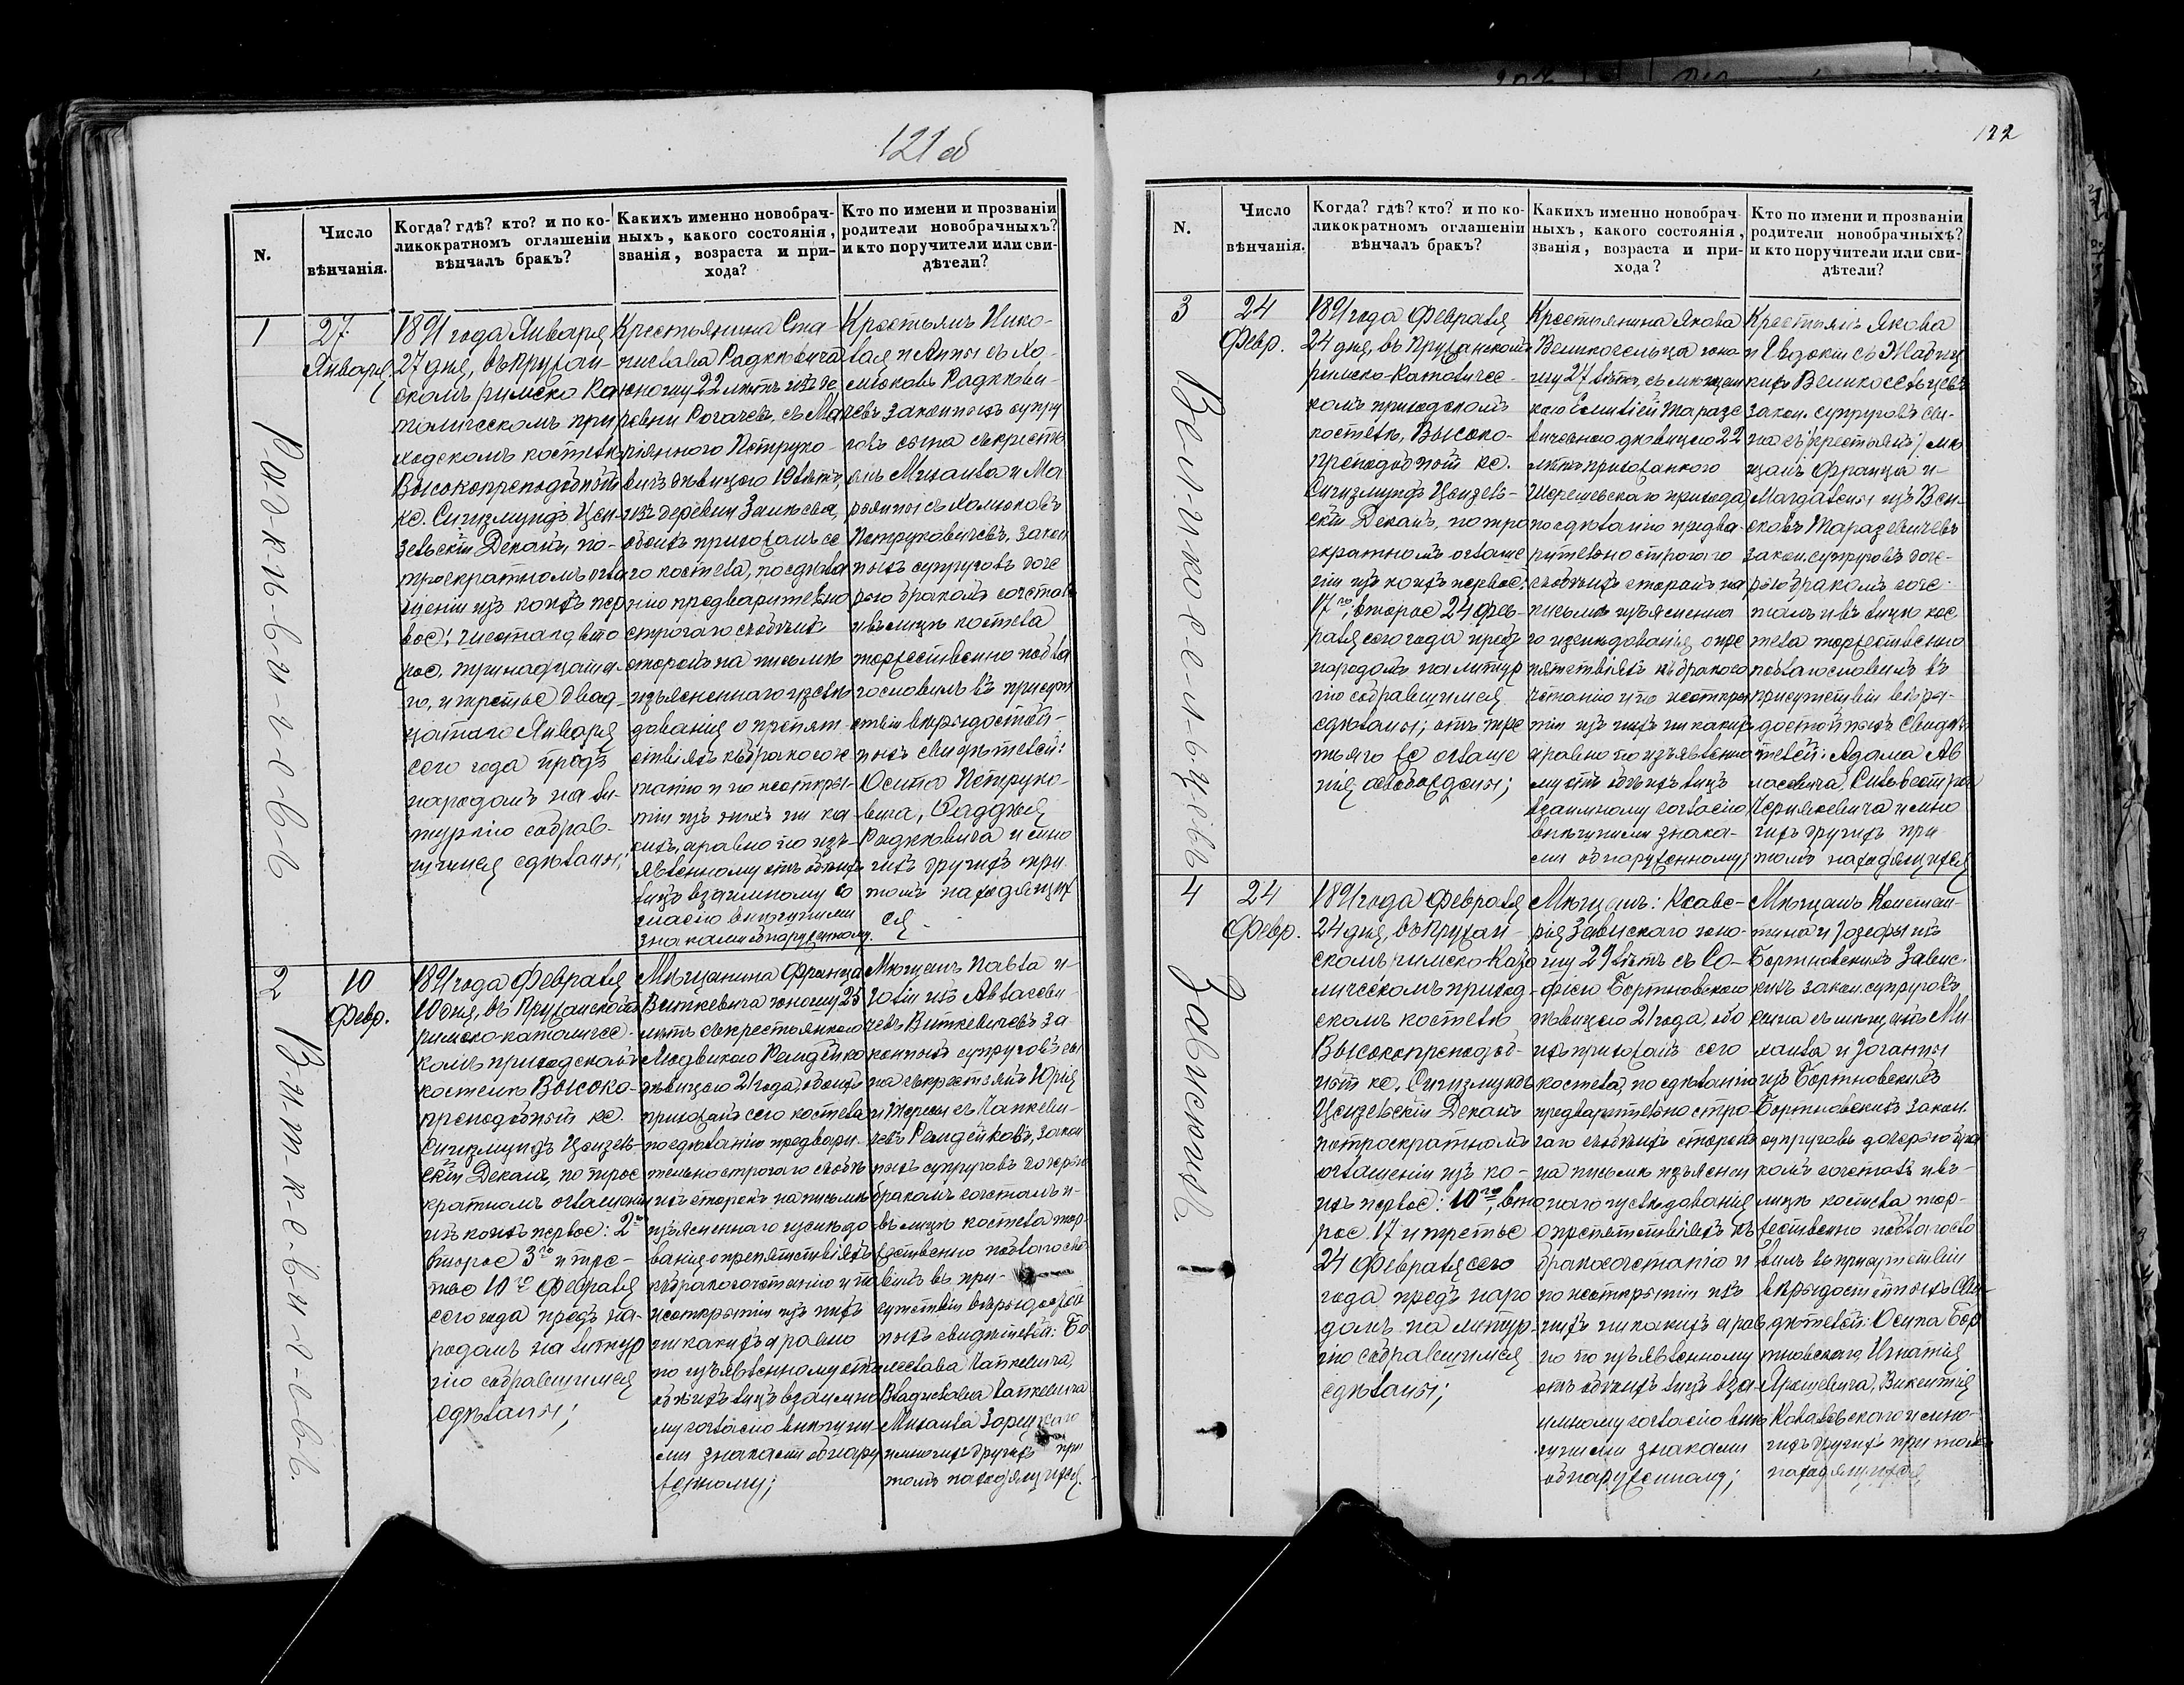 121 об
N.
Число
вѣнчанія.
Когда? гдѣ? кто? и по ко-
ликократномъ оглашеніи
вѣнчалъ бракъ?
Какихъ именно новобрач-
ныхъ, какого состоянія,
званія, возраста и при-
хода?
Кто по имени и прозванiи
родители новобрачныхъ?
и кто поручители или сви-
дѣтели?
1
27
Января
1891 года Января
27 дня, въ Пружан-
скомъ римско ка
толическомъ при
ходскомъ костелѣ
Высокопреподобный
кс. Сигизмундъ Цен-
зельскій Деканъ, по-
троекратномъ огла
шеніи изъ коихъ пер
вое: шестаго, вто
рое. тринадцата
го, и третье двад-
цатаго Января
сего года предъ
народомъ на ли-
тургію собрав-
шимся сдѣланы;
Крестьянина Ста-
нислава Радкевича
юношу 22 лѣтъ изъ де
ревни Рогачев, съ Ма
ріянною Петруко-
вичъ дѣвицею 19 лѣтъ,
изъ деревни Заинева,
обоихъ прихожанъ се
го костела, по сдѣла
нію предварительно
строгаго съ обѣихъ
сторонъ на письмѣ
изъясненнаго изслѣ
дованія о препят-
ствіяхъ къ бракосоче
танію и по неоткры-
тіи изъ нихъ ни ка
кихъ, а равно по изъ-
явленному отъ обоихъ
лицъ взаимному со
гласію внѣшними
знаками обнаруженному.
Крестьянъ Нико-
лая и Анны съ Хо-
мюковъ Радкеви-
чевъ законныхъ супру
говъ сына съ крестья
нъ Михаила и Ма
ріянны съ Хомюковъ
Петруковичевъ, закон
ныхъ супруговъ доче
рью бракомъ сочеталъ
и въ лицѣ костела
торжественно побла
гословилъ въ присут
ствіи вѣрыдостой-
ныхъ свидѣтелей:
Осипа Петруко-
вича, Фаддея
Радкевича и мно
гихъ другихъ при
томъ находящих
ся.
Радкевичевъ
2
10
Февр.
1891 года Февраля
10 дня, въ Пружанскомъ
римско-католичес-
комъ приходскомъ
костелѣ Высоко-
преподобный кс.
Сигизмундъ Цензель-
скій Деканъ, по трое
кратномъ оглашеніи
изъ коихъ первое: 2го
второе 3го и тре-
тье 10го Февраля
сего года предъ на-
родомъ на литур
гію собравшимся
сдѣланы;
Мѣщанина Франца
Виткевича юношу 25
лѣтъ съ крестьянкою
Людвикою Рендейко
дѣвицею 21 года, обоихъ
прихожанъ сего костела
по сдѣланію предвари-
тельно строгаго съ обѣ
ихъ сторонъ на письмѣ
изъясненнаго изслѣдо
ванія о препятствіяхъ
къ бракосочетанію и по
неоткрытіи изъ нихъ
ни какихъ а равно
по изъявленному отъ
обоихъ лицъ взаимно
му согласію внѣшни
ми знаками обнару
женному;
Мѣщанъ Павла и
Юліи изъ Авласеви-
чевъ Виткевичевъ за
конныхъ супруговъ сы
на съ крестьянъ Юрія
и Терезы съ Чапкеви-
чевъ Рендейковъ, закон
ныхъ супруговъ дочерью
бракомъ сочеталъ и-
въ лицѣ костела тор-
жественно поблагосло
вилъ въ при-
сутствіи вѣрыдостой
ныхъ свидѣтелей: Бо
леслава Чапкевича,
Владислава Чапкевича
Михаила Зарецкаго
и многихъ другихъ при
томъ находящихся.
Виткевичевъ.
122
N.
Число
вѣнчанія.
Когда? гдѣ? кто? и по ко-
ликократномъ оглашеніи
вѣнчалъ бракъ?
Какихъ именно новобрач-
ныхъ, какого состоянія,
званія, возраста и при-
хода?
Кто по имени и прозваніи
родители новобрачныхъ?
и кто поручители или сви-
дѣтели?
3
24
Февр.
1891 года Февраля
24 дня, въ Пружанскомъ
римско-католичес-
комъ приходскомъ
костелѣ, Высоко-
преподобный кс.
Сигизмундъ Цензель-
скій Деканъ, по трое
кратномъ оглаше
ніи изъ коихъ первое:
17го, второе 24 Фев-
раля сего года предъ
народомъ на литур
гію собравшимся
сдѣланы; отъ тре
тьяго же оглаше
нія освобождены;
Крестьянина Якова
Великосельца юно-
шу 27 лѣтъ, съ мѣщан
кою Эмиліей Тарасе
вичевною дѣвицею 22
лѣтъ прихожанкою
Шерешевскаго прихода,
по сдѣланію предва-
рительно строгаго
съ обѣихъ сторонъ на
письмѣ изъясненна
го изслѣдованія о пре
пятствіяхъ къ бракосо
четанію и по неоткры
тіи изъ нихъ ни какихъ
а равно по изъявленно
му отъ обоихъ лицъ
взаимному согласію
внѣшними знака-
ми обнаруженному;
Крестьянъ Якова
и Евдокіи съ
Великосельцевъ
закон. супруговъ сы-
на съ мѣ
щанъ Франца и
Магдалены изъ Вен-
сковъ Тарасевичевъ
закон. супруговъ доче-
рью бракомъ соче-
талъ и въ лицѣ кос
тела торжественно
поблагословилъ въ
присутствіи вѣры-
достойныхъ свидѣ-
телей: Адама Ав
ласевича, Сильвестра
Чернякевича и мно
гихъ другихъ при
томъ находящихся
Великосельцевъ
4
24
Февр.
1891 года Февраля
24 дня, въ Пружан-
скомъ римско-като
лическомъ приход-
скомъ костелѣ
Высокопреподоб-
ный кс. Сигизмундъ
Цензельскій Деканъ
по троекратномъ
оглашеніи изъ ко-
ихъ первое: 10го, вто
рое 17 и третье
24 Февраля сего
года предъ наро
домъ на литур-
гію собравшимся
сдѣланы;
Мѣщанъ: Ксаве-
рія Завискаго юно-
шу 29 лѣтъ съ Со-
фіею Бортновскою
дѣвицею 21 года, обо
ихъ прихожанъ сего
костела, по сдѣланію
предварительно стро-
гаго съ обѣихъ сторонъ
на письмѣ изъяснен
наго изслѣдованія
о препятствіяхъ къ
бракосочетанію и
по неоткрытіи изъ
нихъ ни какихъ а рав
но по изъявленному
отъ обоихъ лицъ вза-
имному согласію внѣ
шними знаками
обнаруженному;
Мѣщанъ Констан-
тина и Іозефы изъ
Бортновскихъ Завис-
кихъ закон. супруговъ
сына съ мѣщанъ Ми-
хаила и Іоганны
изъ Бортновскихъ
Бортновскихъ закон.
супруговъ дочерью бра
комъ сочеталъ и въ-
лицѣ костела тор-
жественно поблагосло
вилъ въ присутствіи
вѣрыдостойныхъ Сви-
дѣтелей: Осипа Бор
тновскаго, Игнатія
Ярошевича, Викентія
Ковалевскаго и мно-
гихъ другихъ при томъ
находящихся
Завискихъ.